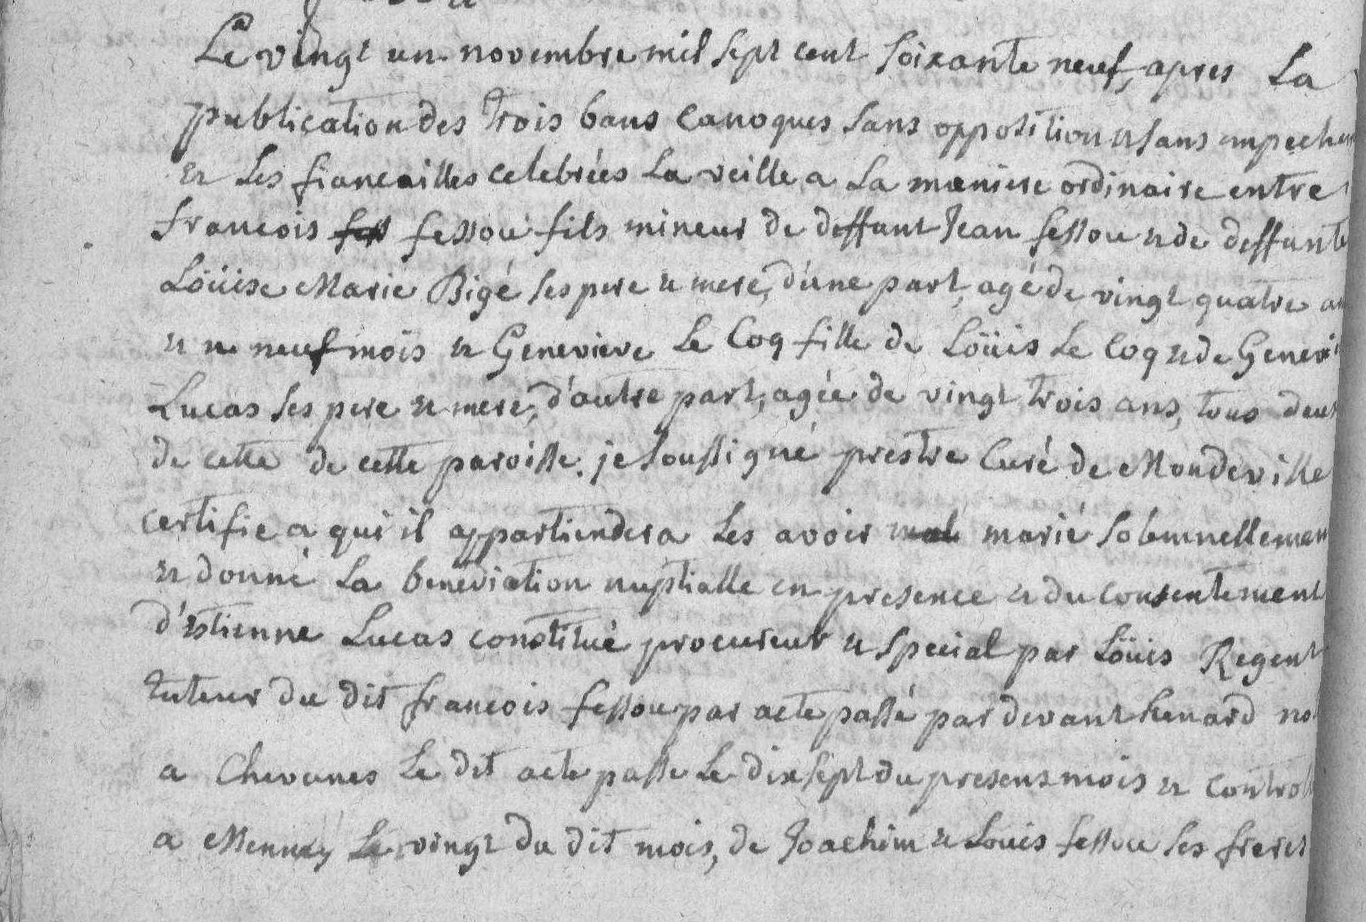 Le vingt un novembre mil sept cent soixante neuf, apres La
publication des Trois bans canoques sans opposition et sans empechem
et Les fiancailles celebrées La veille a La maniere ordinaire entre
francois fess fessou fils mineur de deffunt Jean fessou et de deffunte
Loüise Marie Bigé ses pere et mere, d'une part, agé de vingt quatre an
et n neuf mois et Genevieve Le Coq fille de Loüis Le Coq et de Genevi
Lucas ses pere et mere, d'autre part, agée de vingt trois ans, tous deux
de cette de cette paroisse. je soussigné prestre Curé de Mondeville
certifie a qui il appartiendera Les avoir marié solemnellemen
et donné La benediction nuptialle en presence et du consentement
d'Estienne Lucas constitué procureur et special par Loüis Regent
tuteur du dit francois fessou par acte passé par devant henard no
a Chevanes Le dit acte passe Le dixsept du present mois et control
a Mennecy Le vingt du dit mois, de Joachim et Louis fessou ses freres